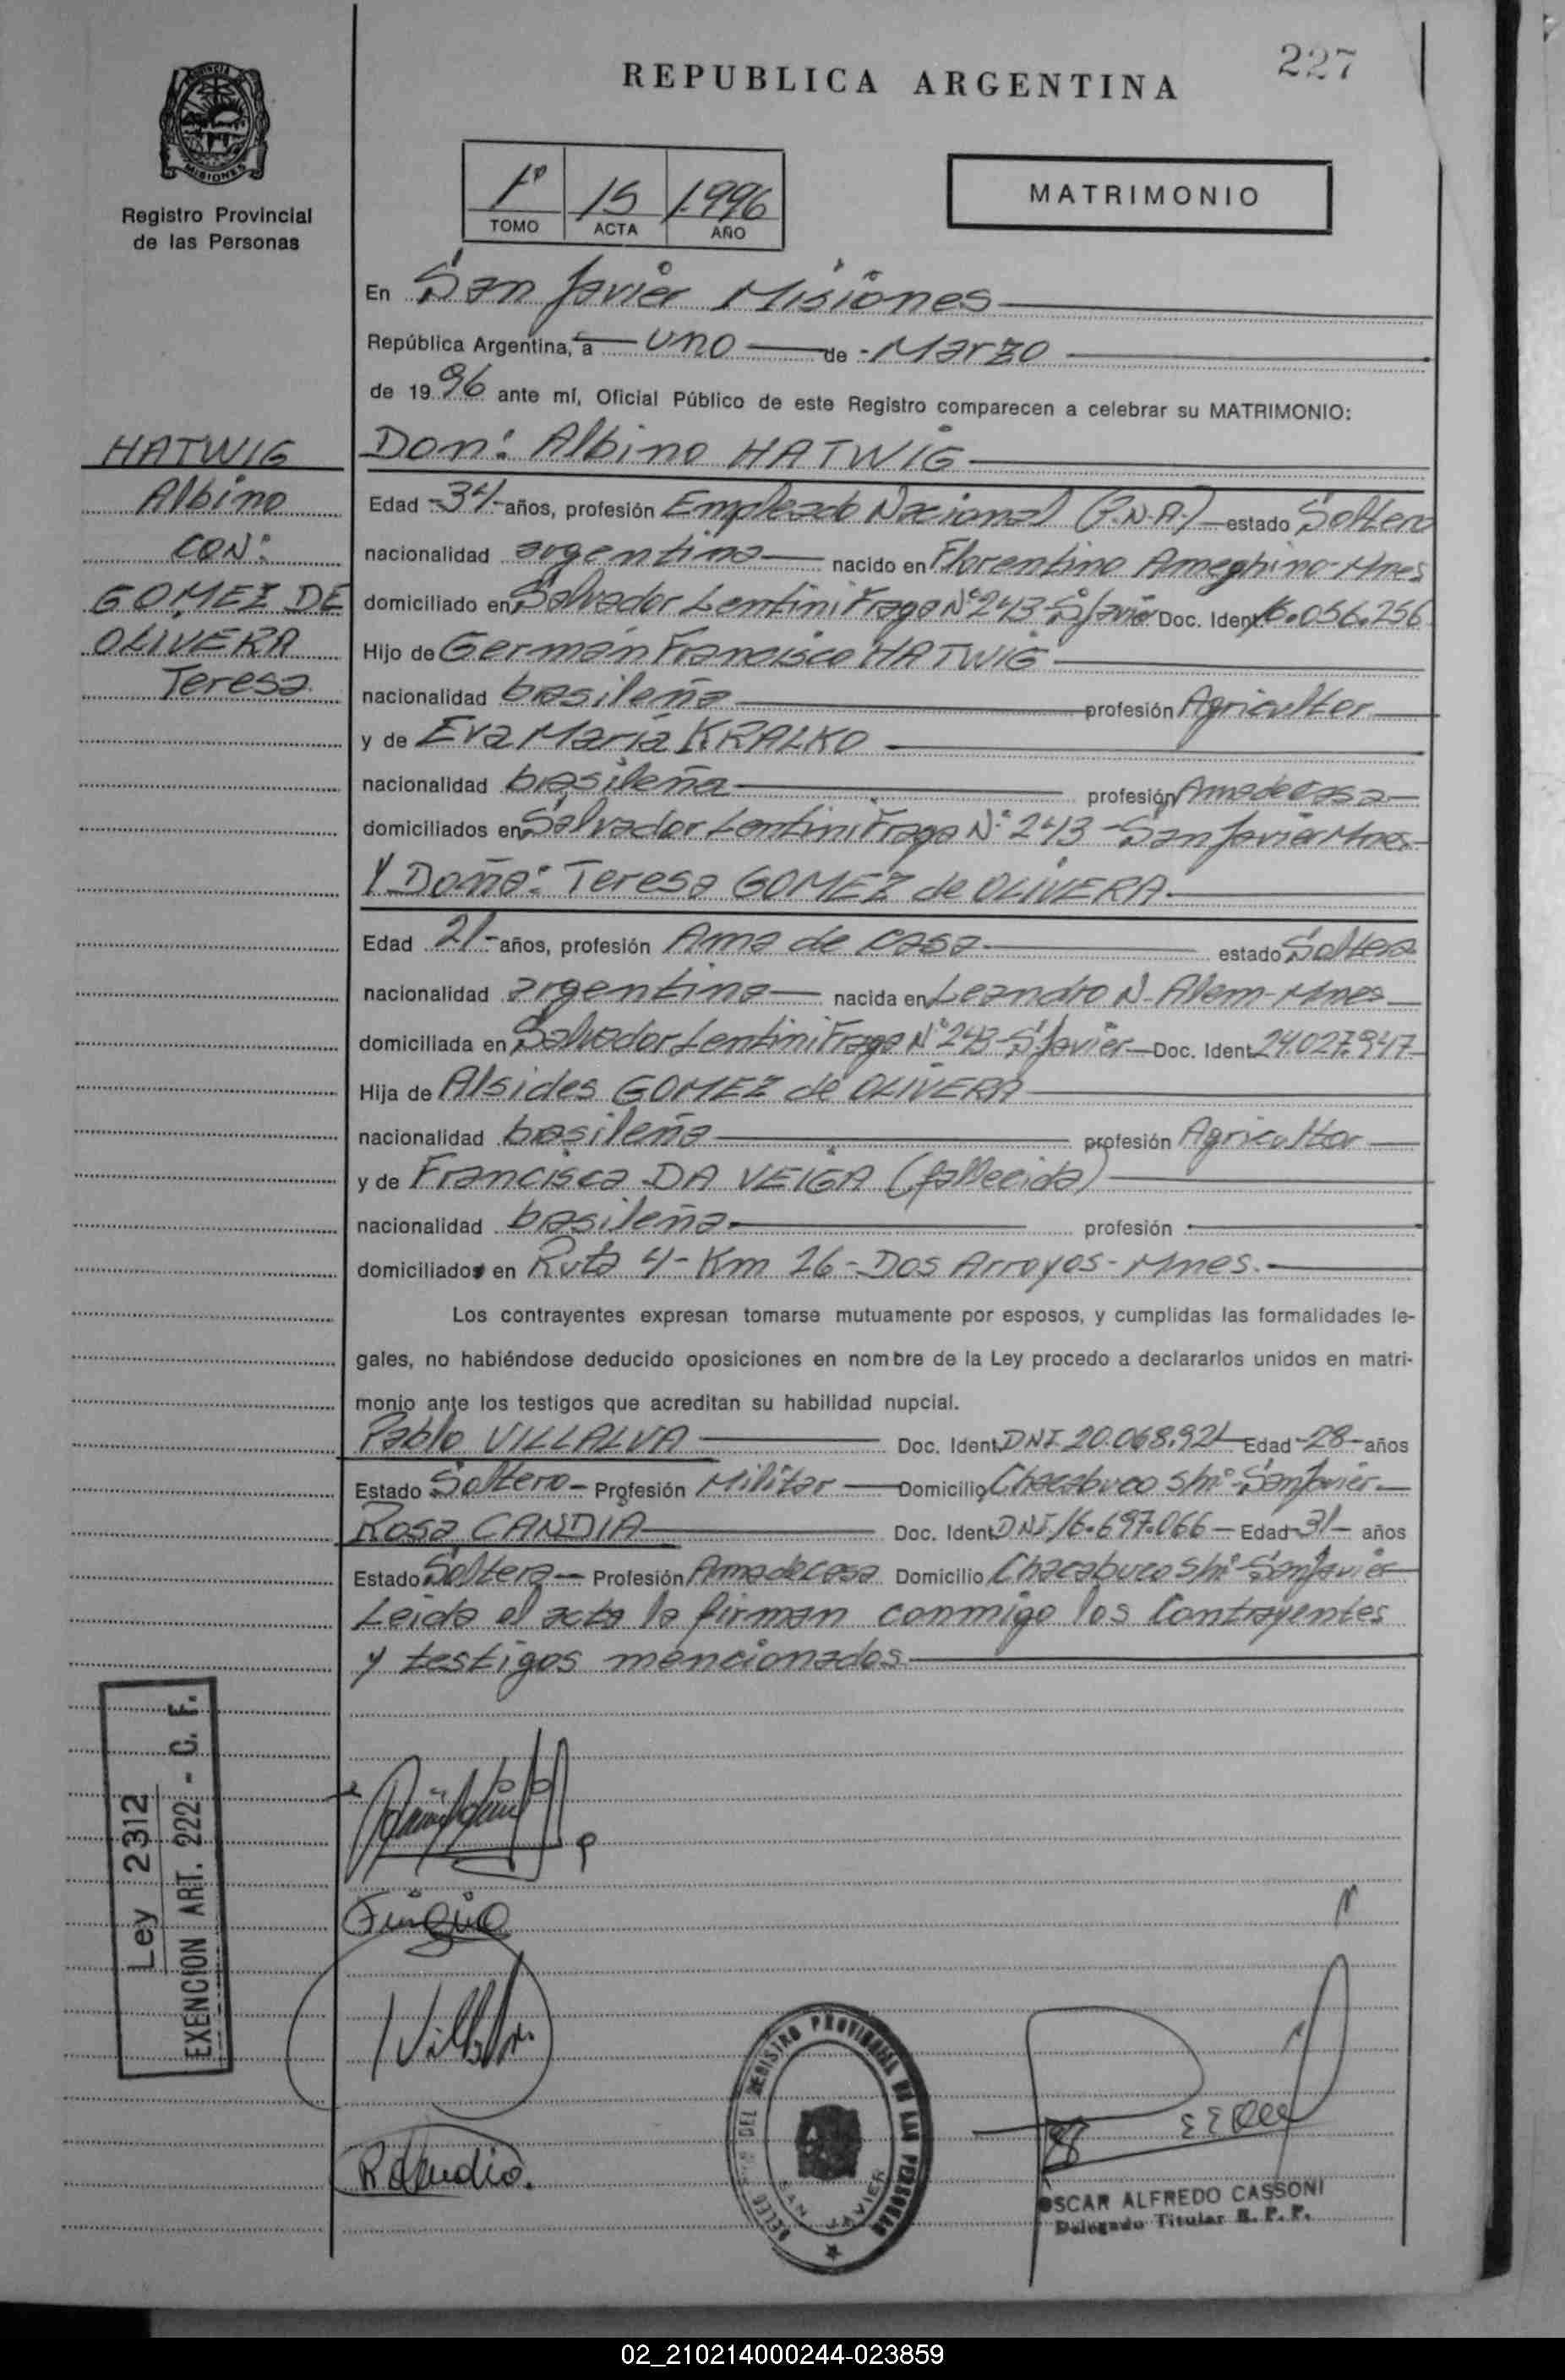 227
REPUBLICA ARGENTINA
PROVINCIA DE
MISIONES
Registro Provincial
de las Personas
1º 15 1996
TOMO ACTA AÑO
MATRIMONIO
En San Javier Misiones
República Argentina, a uno de Marzo
de 1996 ante mí, Oficial Público de este Registro comparecen a celebrar su MATRIMONIO:
HATWIG
Albino
CON:
GOMEZ DE
OLIVERA
Teresa
Don: Albino HATWIG
Edad -34- años, profesión Empleado Nacional (P.N.A.) estado Soltero
nacionalidad argentina nacido en Florentino Ameghino-Mnes
domiciliado en Salvador Lentini Fraga Nº 243-S. Javier Doc. Ident. 16.056.256
Hijo de Germán Francisco HATWIG
nacionalidad brasileña profesión Agricultor
y de Eva María KRALKO
nacionalidad brasileña profesión Ama de casa
domiciliados en Salvador Lentini Fraga Nº 243-San Javier Mnes
Y Doña: Teresa GOMEZ de OLIVERA
Edad 21- años, profesión Ama de casa estado Soltera
nacionalidad argentina nacida en Leandro N. Alem-Mnes
domiciliada en Salvador Lentini Fraga Nº 243-S. Javier Doc. Ident. 24.027.947
Hija de Alsides GOMEZ de OLIVERA
nacionalidad brasileña profesión Agricultor
y de Francisca DA VEIGA (fallecida)
nacionalidad brasileña profesión
domiciliados en Ruta 4-Km 26-Dos Arroyos-Mnes.
Los contrayentes expresan tomarse mutuamente por esposos, y cumplidas las formalidades le-
gales, no habiéndose deducido oposiciones en nombre de la Ley procedo a declararlos unidos en matri-
monio ante los testigos que acreditan su habilidad nupcial.
Pablo VILLALVA Doc. Ident. DNI 20.068.921 Edad -28- años
Estado Soltero- Profesión Militar Domicilio Chacabuco s/nº-San Javier-
Rosa CANDIA Doc. Ident. DNI 16.697.066 Edad -31- años
Estado Soltera Profesión Ama de casa Domicilio Chacabuco s/nº-San Javier
Leída el acta la firman conmigo los Contrayentes
y testigos mencionados
Ley 2312
EXENCION ART. 222 - C. F.
DEL REGISTRO PROVINCIAL DE LAS PERSONAS
SAN JAVIER
OSCAR ALFREDO CASSONI
Delegado Titular R. P. P.
02_210214000244-023859